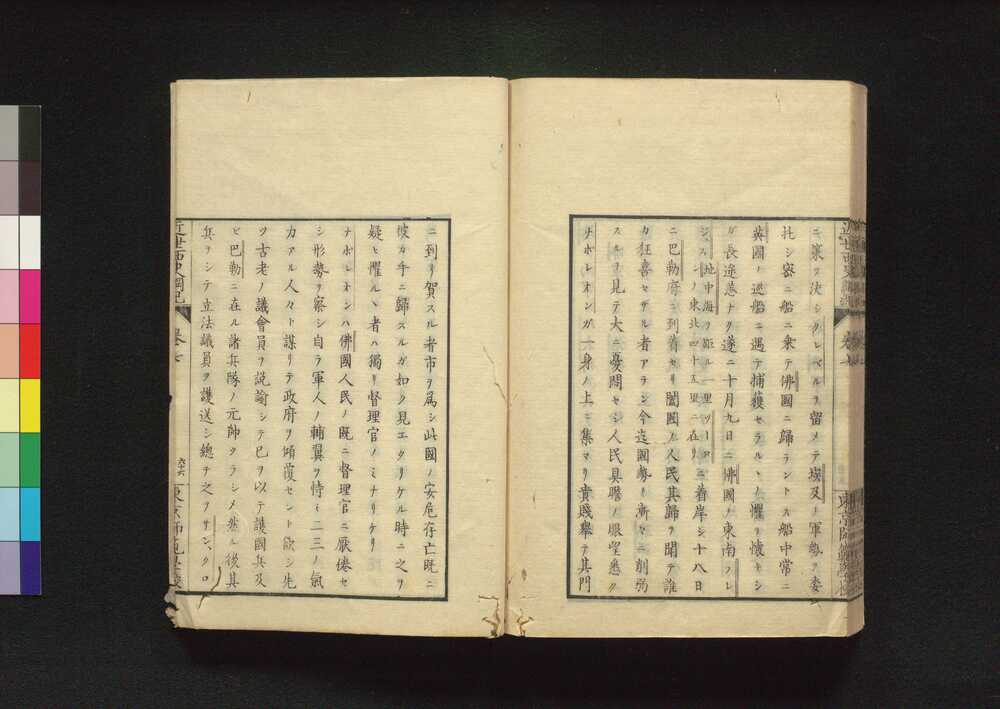 ニ衷ヲ決シクレベルヲ留メテ埃及ノ軍勢ヲ委
托シ密ニ船ニ乗テ佛國ニ歸ラントス船中常ニ
英國ノ巡船ニ遇テ捕獲セラルヽノ懼ヲ懐キシ
ガ長途恙ナク遂ニ十月九日ニ佛國ノ東南フレ
ジュスノ東北四十五里ニ在リ
地中海ヲ距ル一里ツーロン
ニ着岸シ十八日
ニ巴勒府ニ到着セリ闔國ノ人民其歸ヲ聞テ誰
カ狂喜セザル者アラン今迄國勢ノ漸々ニ削弱
スルヲ見テ大ニ憂悶セシ人民具瞻ノ眼望悉ク
ナポレオンガ一身ノ上ニ集マリ貴賤擧テ其門
ニ到リ賀スル者市ヲ為シ此國ノ安危存亡既ニ
彼カ手ニ歸スルガ如ク見エタリケル時ニ之ヲ
疑ヒ懼ルヽ者ハ獨リ督理官ノミナリケリ
ナポレオンハ佛國人民ノ既ニ督理官ニ厭倦セ
シ形勢ヲ察シ自ラ軍人ノ輔翼ヲ恃ミ二三ノ氣
力アル人々ト謀リテ政府ヲ傾覆セント欲シ先
ヅ古老ノ議會員ヲ説諭シテ已ヲ以テ護國兵及
ヒ巴勒ニ在ル諸兵隊ノ元帥タラシメ然ル後其
兵ヲシテ立法議員ヲ護送シ總テ之ヲサン、クロ
近世西史綱紀
巻七